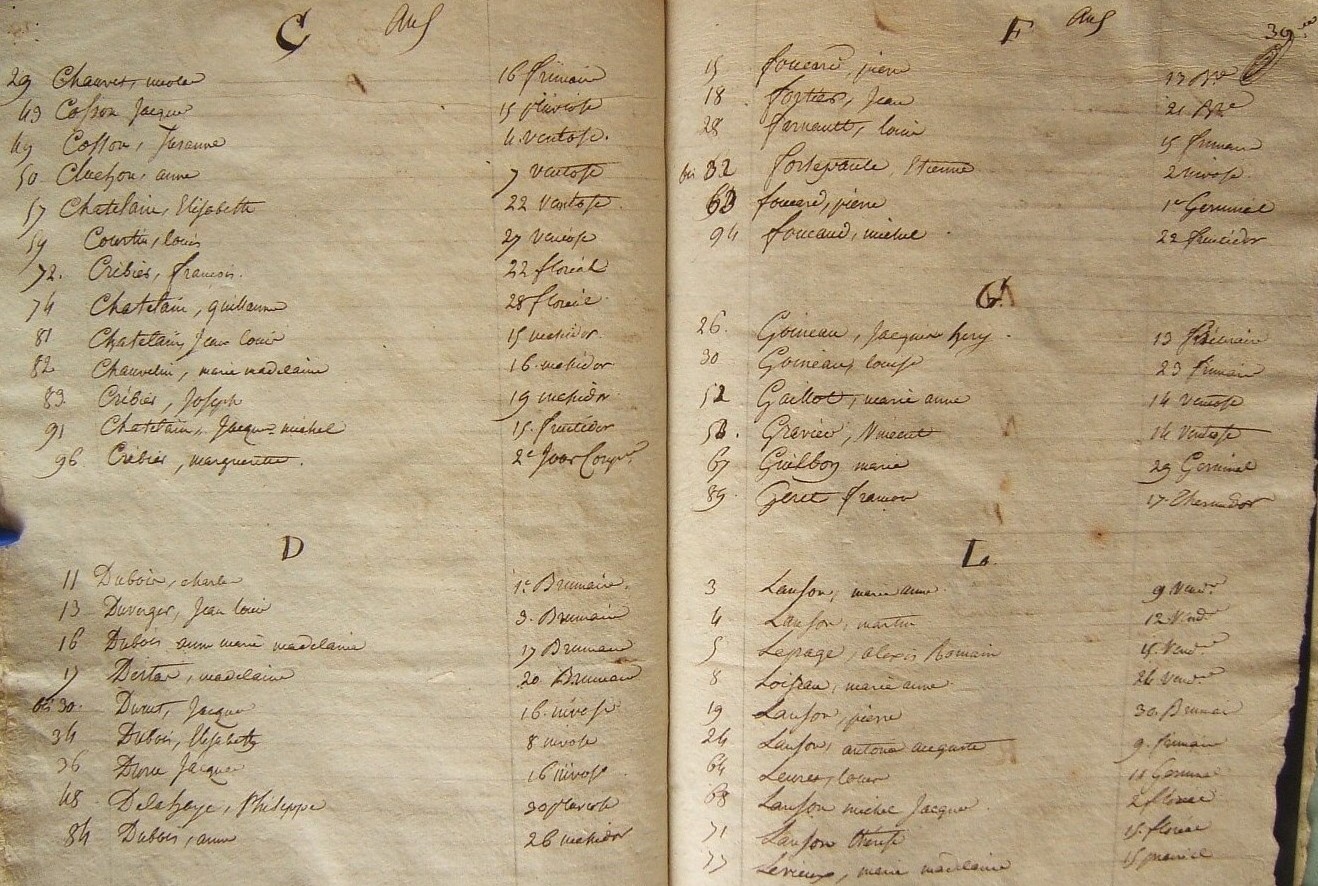 C
29 Chauvet, nicolas 16 frimaire
43 Cosson Jacque 15 pluviose
49 Cosson, Susanne 4. ventose.
50 Cluchon, anne 7 ventose
57 Chatelain, Elisabeth 22 Ventose.
59 Courtin, louis 27 Ventose
72. Cribier, françois. 22 floréal
74 Chatelain, guillaume 28 floréal
81 Chatelain, Jean louis 15 mesidor.
82 Chauvelin, marie madelaine 16. mesidor
83 Cribier, Joseph 19 mesidor
91 Chatelain, Jacque michel 15. fructidor
96 Cribier, margueritte. 2e Jour
D
11 Dubois, charle 1e Brumaire.
13 Duverger, Jean louis 3. Brumaire
16 Dubois anne marie madelaine 17 Brumaire
17 madelaine 20. Brumaire
bis 30. Jacque 16. nivose
34 Dubois, Elisabeth 8 nivose
36 Jacque 16 nivose
48 Delahaye, Philippe 30 pluviose
84 Dubois, anne 26 mesidor
F
15 foucard, pierre 13 Bre
18 fortier, Jean 21 Bre
28 farnault, louis 15 frimaire
bis 32 Etienne 2 nivose.
foucard, pierre 1er Germinal
94 foucaud, michel 22 fructidor
G
26. Goineau, Jacques 13
30 Goineau, louise 23 frimaire
52 Gaillot, marie anne 14 Ventose
53. Gravier, Vincent 14 Ventose
67 Guilbon marie 29 Germinal
89. Geret françois 17. Thermidor
L.
3 Lanson, marie anne 9 Vendre
4 Lanson, martin 12 Vendre
5 Lepage, alexis Romain 15. Vendre
8 Loiseau, marie anne 26 Vendre
19 Lanson, pierre 30. Brumaire
24 Lanson, antoine auguste 9. frimaire
64 louis Germinal
68 Lanson michel Jacque 2 floreal
71 Lanson therese 15. floreal
77 Levieux, marie madelaine 15 prairial